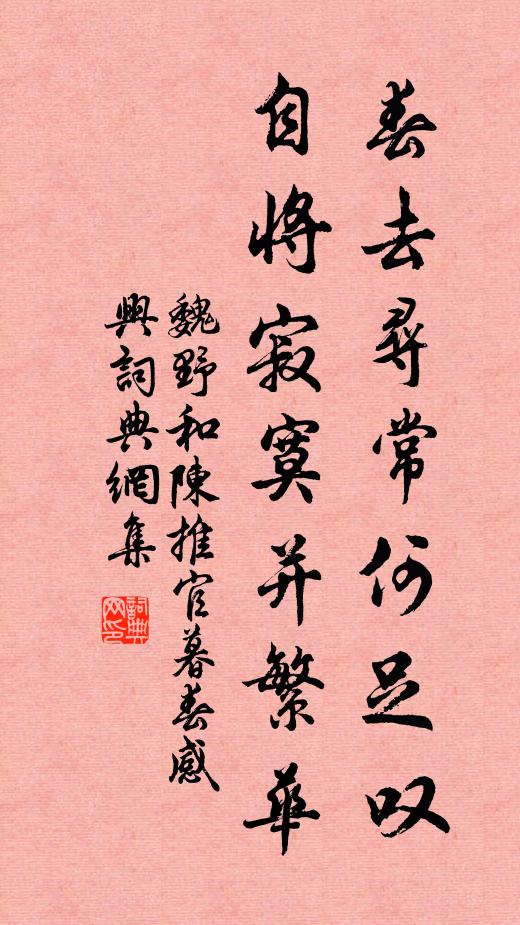 春去尋常何足叹
自將寂寞并繁華
魏野和陳推官暮春感
興詞典網集
詞典网印